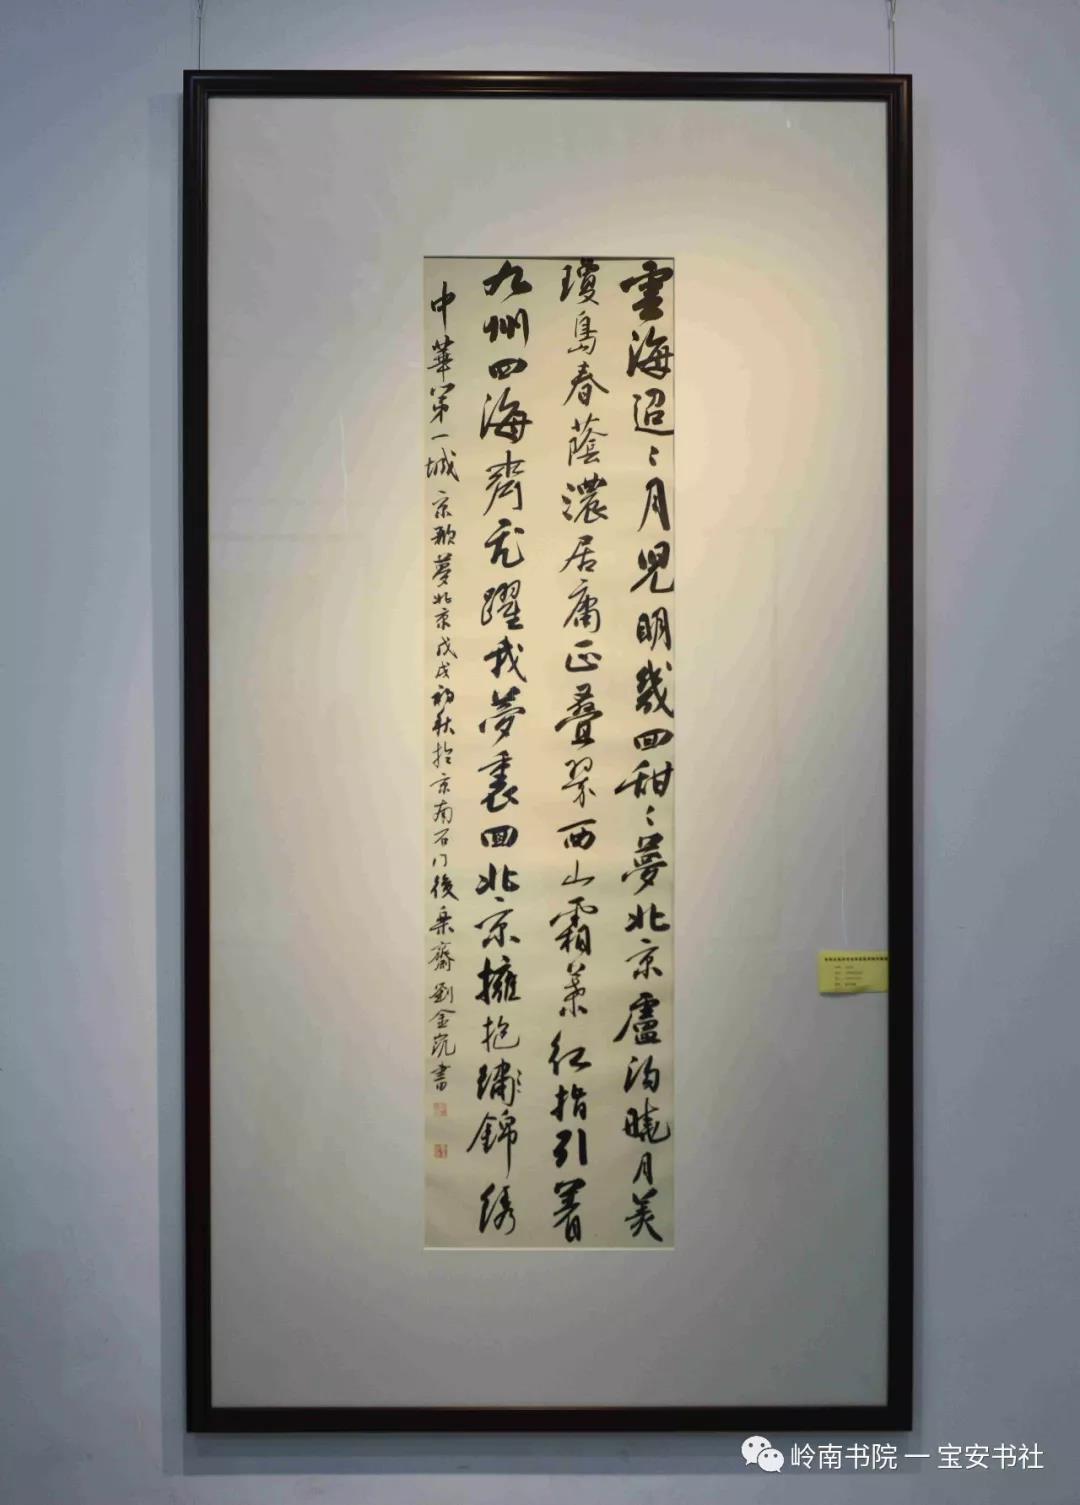 雲海迢〻月兒明幾回甜〻夢北京盧沟曉月美
瓊島春蔭濃居庸正疊翠西山霜葉紅指引着
九州四海齊躍我夢裏回北京擁抱錦绣
中華第一城 京歌夢北京戊戌初秋於京南石门後樂齋劉金凯書
岭南书院 — 宝安书社